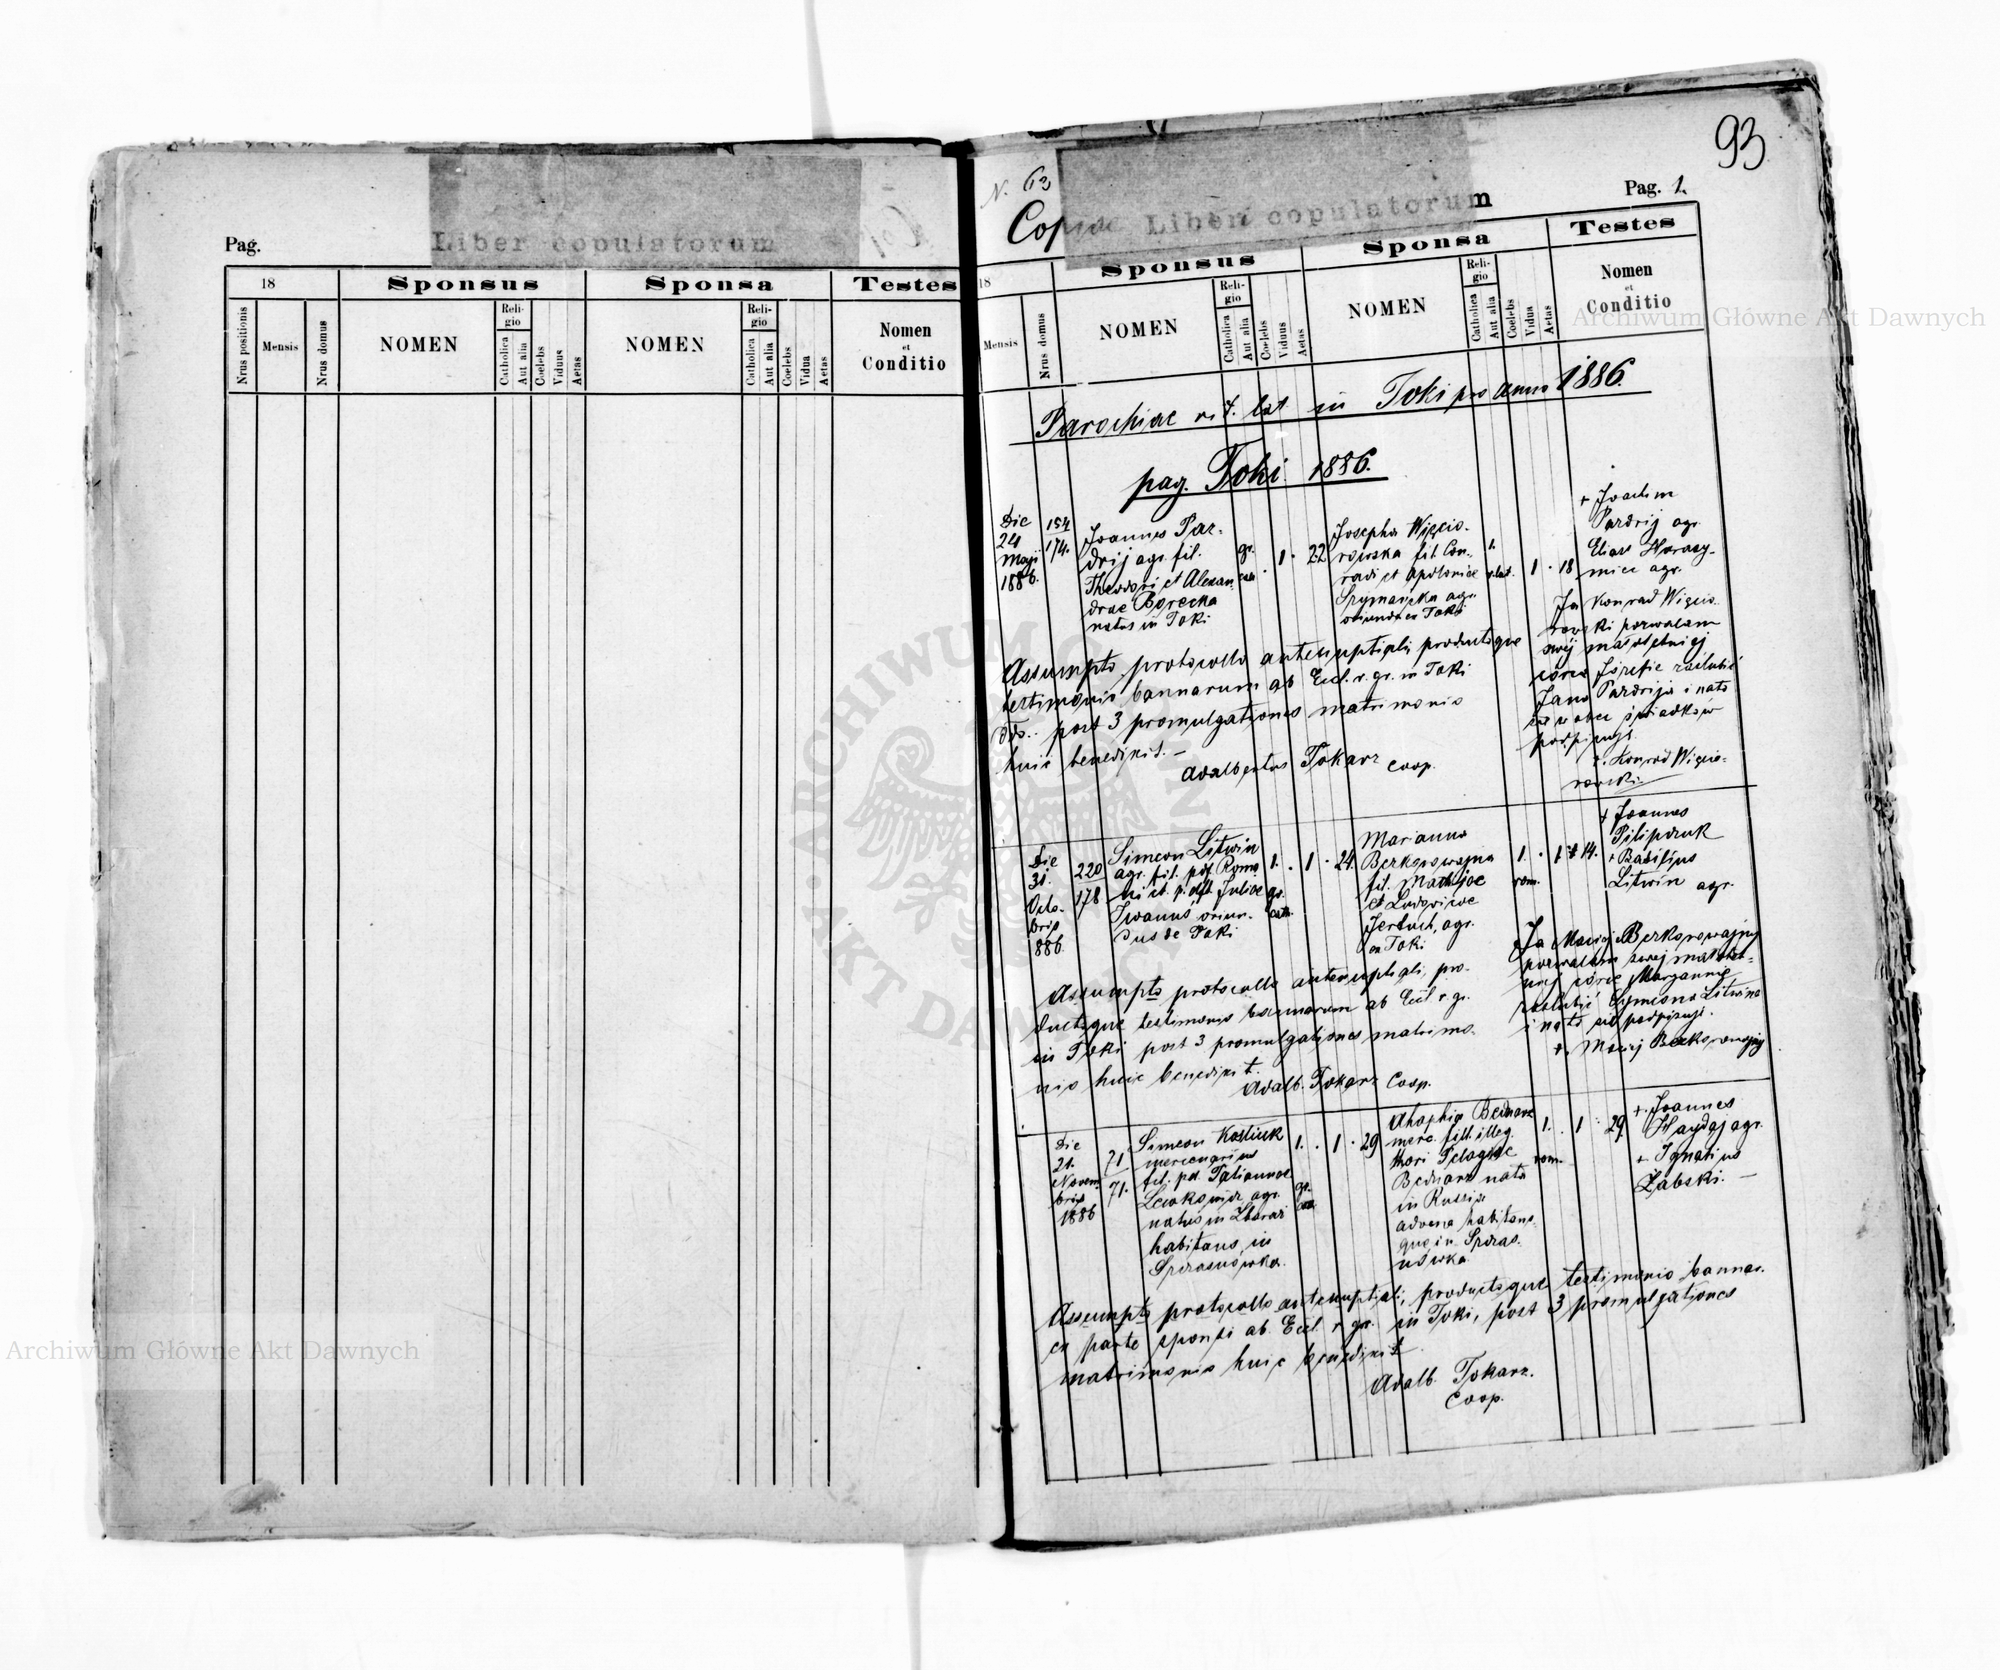 Pag.
Liber copulatorum
18
Sponsus
Sponsa
Testes
Nrus positionis
Mensis
Nrus domus
NOMEN
Religio
Catholica
Aut alia
Coelebs
Vidus
Aetas
NOMEN
Religio
Catholica
Aut alia
Coelebs
Vidua
Aetas
Nomen
et
Conditio
93
N. 63
Pag. 1.
Copiae Libri copulatorum
18
Sponsus
Sponsa
Testes
Mensis
Nrus domus
NOMEN
Religio
Catholica
Aut alia
Coelebs
Vidus
Aetas
NOMEN
Religio
Catholica
Aut alia
Coelebs
Vidua
Aetas
Nomen
et
Conditio
Parochiae rit. lat in Toki pro anno 1886.
pag. Toki 1886.
Die
24
Maji
1886.
154
174.
Joannes Paz-
drij agr. fil.
Theodori et Alexan
drae Borecka
natus in Toki
gr.
cath.
1
22
Josepha Więcio-
rowska fil. Con-
radi et Apoloniae
Szymańska agr.
oriunda ex Toki
1.
r. lat.
1
18
+ Joachim
Pazdrij agr.
Elias Harasy-
miec agr.
Ja Konrad Więcio-
rowski pozwalam
swéj małoletniej
córce Józefie zaślubić
Jana Pazdrija i na to
się w obec świadków
podpisuję.
+. Konrad Więcio-
rowski.
Assumpto protocollo antenuptiali, productoque
testimonio bannorum ab Eccl. r. gr. in Toki
post 3 promulgationes matrimonio
huic benedixit. —
Adalbertus Tokarz coop.
Die
31.
Octo-
bris
1886
220
178
Simeon Litwin
agr. fil. pdf. Roma
ni et p. dft. Juliae
Iwanus oriun-
dus de Toki
1.
gr.
cath.
1
24.
Marianna
Berkorowajna
fil. Mathiae
et Ludovicae
Jerbuch, agr.
ex Toki
1.
rom.
1
14.
+ Joannes
Pilipczuk
+ Basilius
Litwin agr.
Ja Maciej Berkorowajny
pozwalam swej małolet-
niej córce Maryannie
zaślubić Symeona Litwina
i na to się podpisuję.
+. Maciej Berkorowajny
Assumpto protocollo antenuptiali, pro-
ductoque testimonio bannorum ab Eccl r. gr.
in Toki post 3 promulgationes matrimo-
nio huic benedixit.
Adalb. Tokarz Coop.
Die
21.
Novem
bris
1886
71
71.
Simeon Kostiuk
mercenarius
fil. pd. Tatiannae
agr.
natus in Zbaraż
habitans in
1.
gr.
cath.
1
29
Ahaphia Bednarz
merc. filia illeg.
thori Pelagiae
Bednarz nata
in Russia
advena habitans
que in
1.
rom.
1
29
+. Joannes
Hayday agr.
+ Ignatius
Żabski. —
Assumpto protocollo antenuptiali, productoque testimonio banno.
ex parte sponsi ab Eccl. r. gr. in Toki, post 3 promulgationes
matrimonio huic benedixit
Adalb. Tokarz.
Coop.
Archiwum Główne Akt Dawnych
Archiwum Główne Akt Dawnych
ARCHIWUM GŁÓWNE AKT DAWNYCH